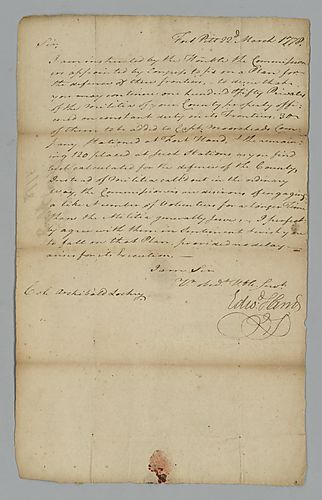 Fort Pitt 22d March 1778.
Sir,
I am instructed by the Honble the Commission
ers appointed by Congress to fix on a Plan for
the defence of these frontiers, to desire that
you may continue one hundred & fifty Privates
of the Militia of your County properly offi
cered on constant duty on its Frontiers. 30
of them to be added to Capt. Moorheads Com
pany stationed at Fort Hand, & the remain
ing 120 placed at such Stations as you find
best calculated for the defence of the County
Instead of Militia called out in the ordinary
way the Commissioners are desirous of engaging
a like Number of Volunteers for a longer Time
than the Militia generally serve, & I perfect
ly agree with them in Sentiment & wish you
to fall on that Plan, provided no delay
arise for its Execution —
I am Sir
Yr. obedt. Hble Servt
Edwd Hand
Col. Archibald Lochry